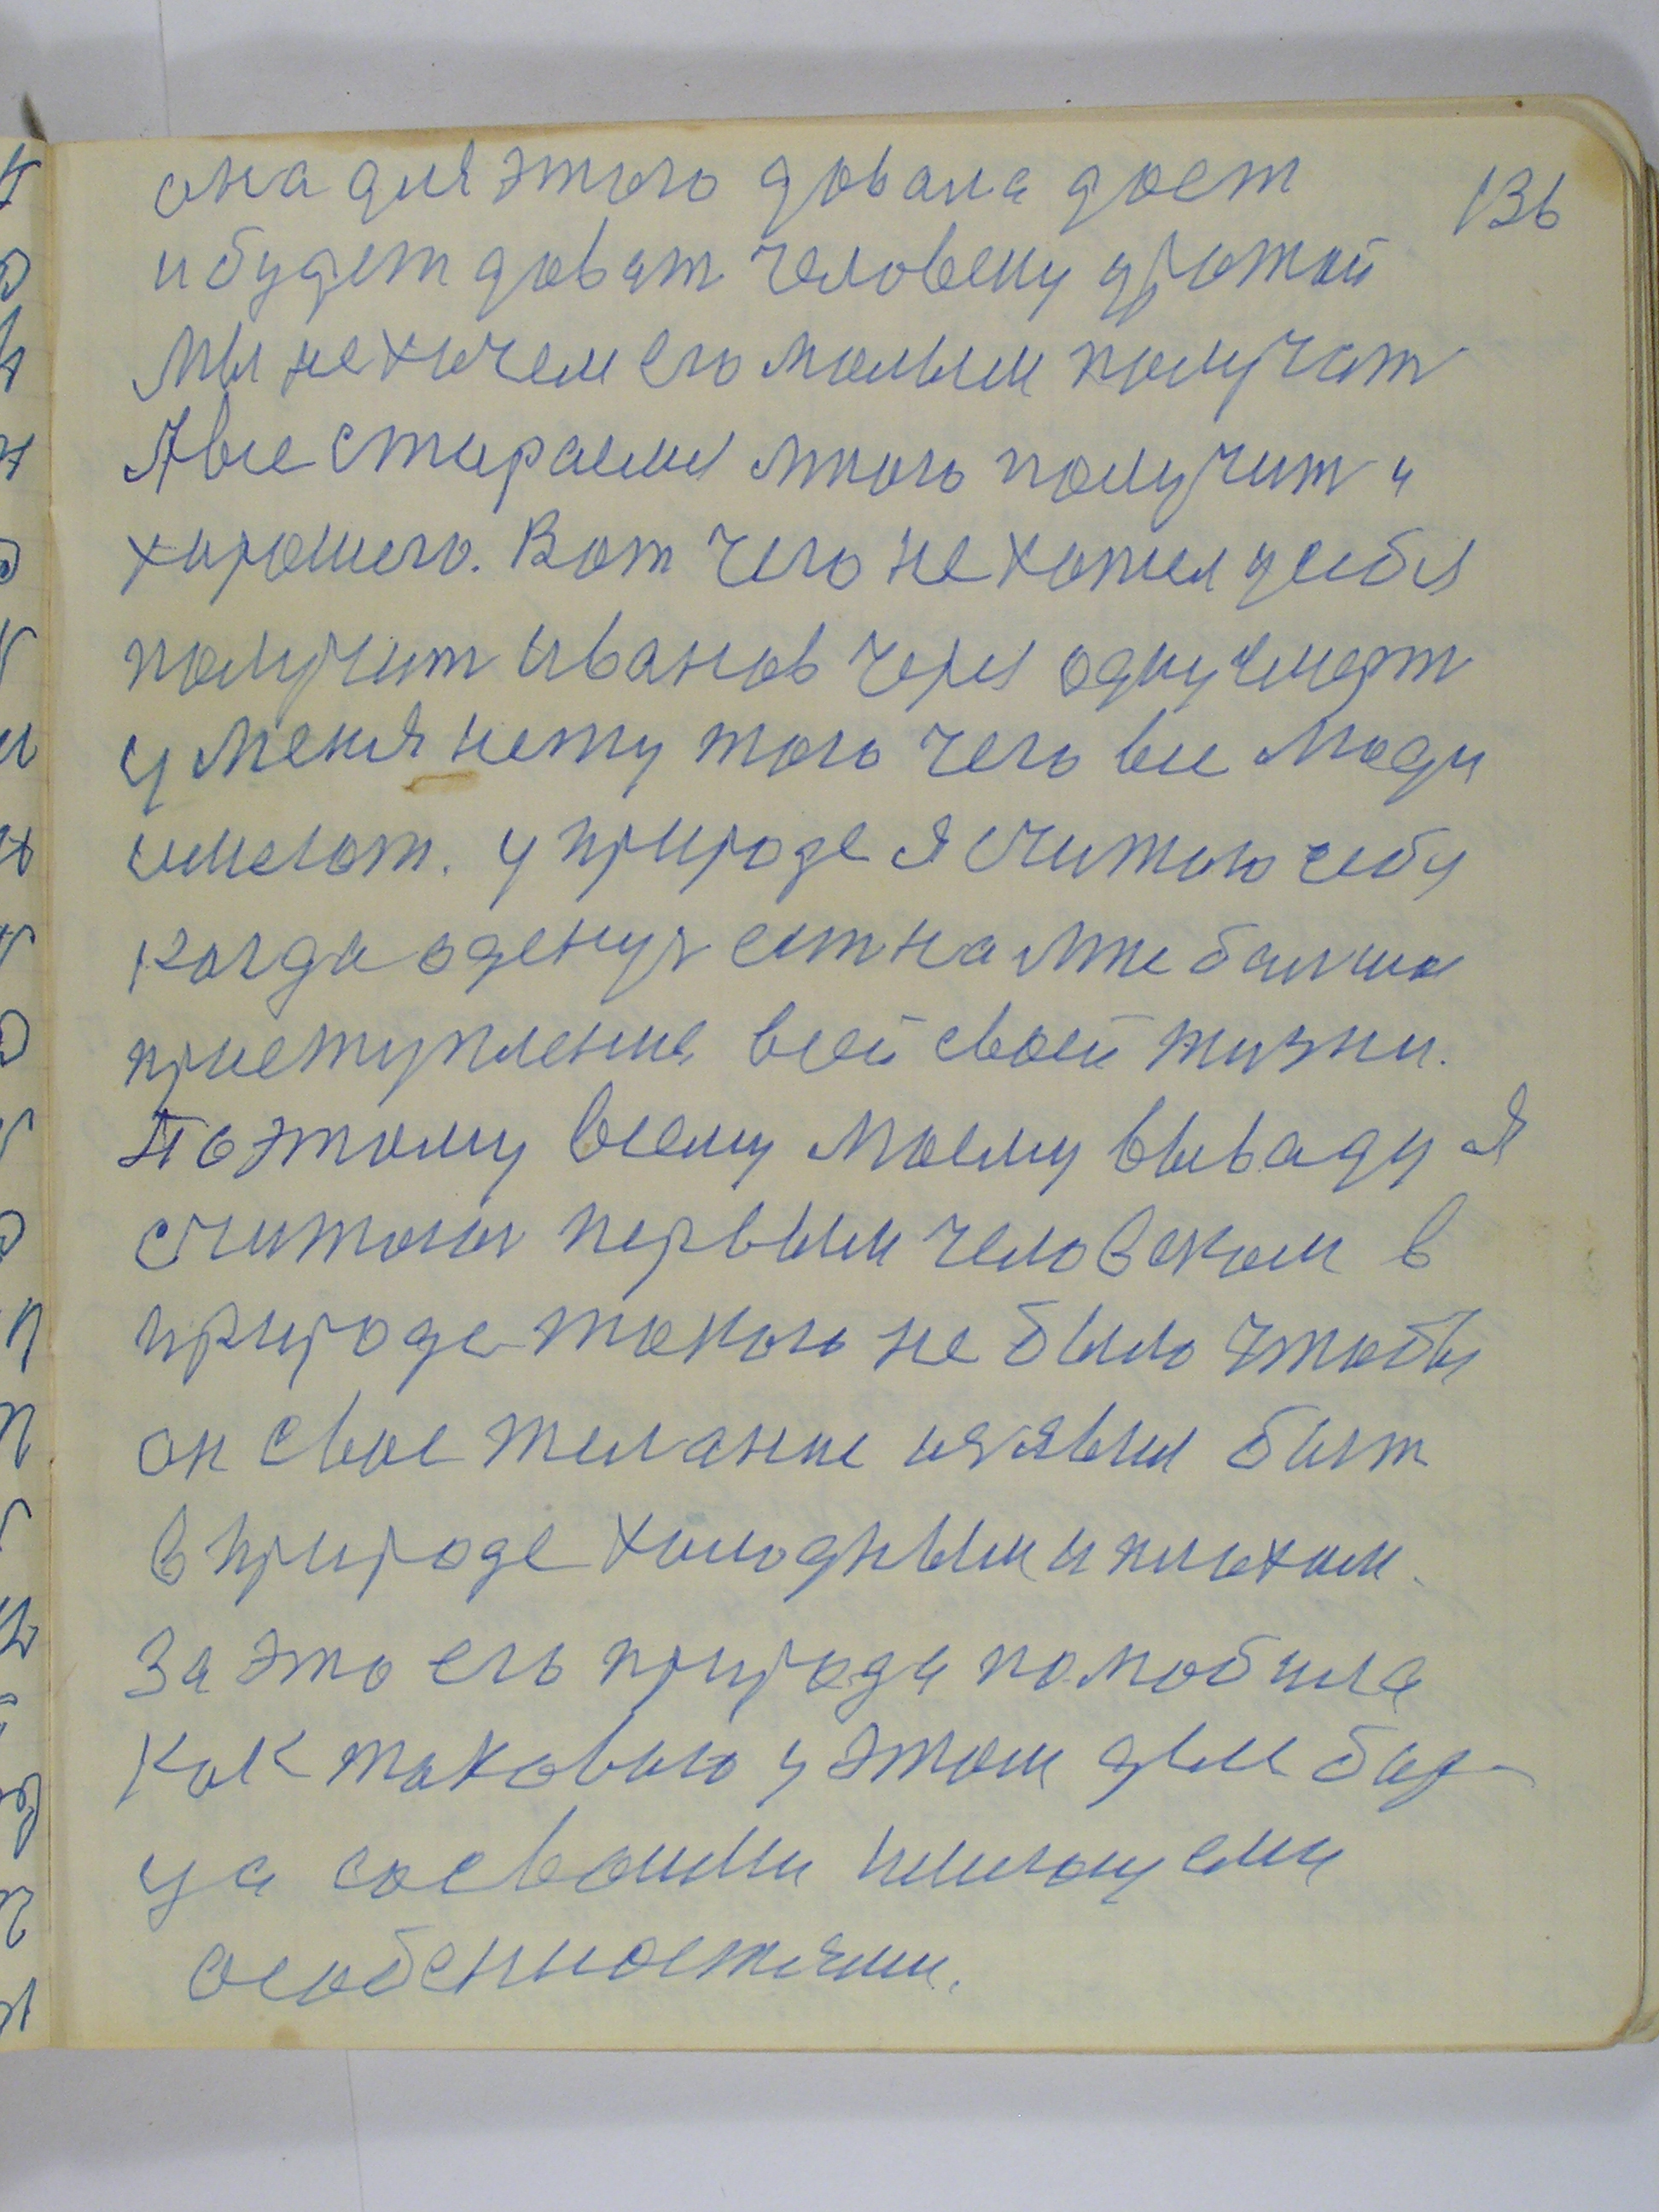 136
она для этого довала доет
и будет доват человеку урожай
Мы не хочем его малым получат
А все стараемся много получит и
хорошего. Вот чего не хотел у себя
получит Иванов через одну смерт
у меня нету того чего все люди
имеют. у природе я считаю себя
когда оденуся ест на мне болшое
приступление всей своей жизни.
Поэтому всему моему вываду я
считаюсь первым человеком в
природе такого не было чтобы
он свое желание изявил быт
в природе холодным и плохом.
За это его природа полюбила
как таковаю у этом деле бор-
ца со своими
особенностями.